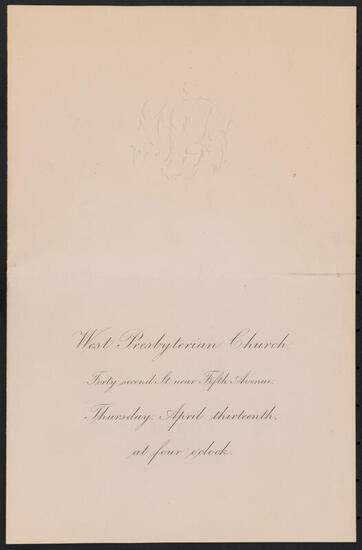 West Presbyterian Church
Forty second St. near Fifth Avenue.
Thursday, April thirteenth,
at four o'clock.